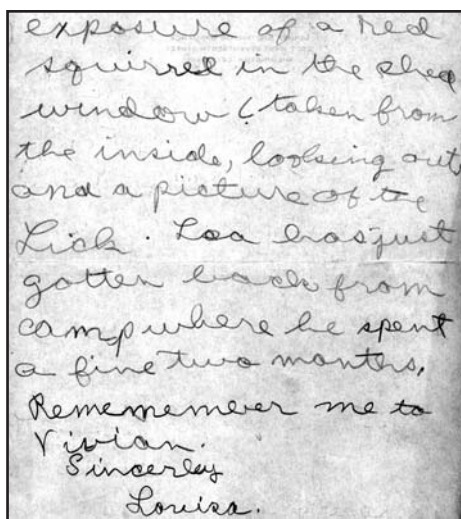 exposure of a red
squirrel in the shed
window (taken from
the inside, looking out)
and a picture of the
Lick. Loa has just
gotten back from
camp where he spent
a fine two months.
Rememember me to
Vivian.
Sincerley
Louisa.